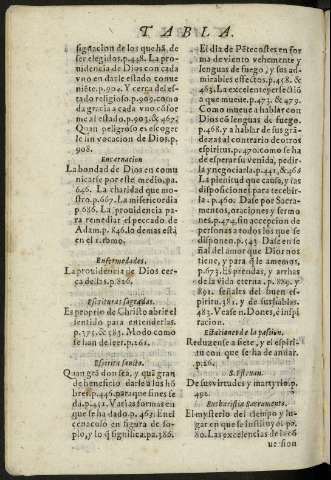 TABLA.
signacion de los que hã. de
ser elegidos. p.448. La pro-
uidencia de Dios con cada
vno en darle estado conue
niẽte. p.904. Y cerca del es-
tado religioso. p.909. como
da gracia a cada vno cõfor
me al estado. p.903. & 467.
Quan peligroso es escoger
le sin vocacion de Dios. p.
908.
Encarnacion
La bondad de Dios en comu
nicarse por este medio. pa.
646. La charidad que mo-
stro. p.667. La misericordia
p.686. La prouidencia pa-
ra remediar el peccado de
Adam. p.846. lo demas està
en el 1. tomo.
Enfermedades.
La prouidencia de Dios cer-
ca de las. p.826.
Escrituras sagradas.
Es proprio de Christo abrir el
sentido para entenderlas.
p.375. & 383. Modo como
se han de leer. p.261.
Espiritu sancto.
Quan grã don sea, y quã gran
de beneficio darle a los hõ
bres. p.446. para que fines se
da. p.452. Varias formas en
que se ha dado. p.463. En el
cenaculo en figura de so-
plo, y lo q̃ significa. pa.386.
El dia de Pẽtecostes en for
ma de viento vehemente y
lenguas de fuego, y sus ad-
mirables effectos. p.458. &
463. La excelente perfectiõ
a que mueue. p.473. & 479.
Como mueue a hablar con
Dios cõ lenguas de fuego.
p.468. y a hablar de sus grã-
dezas al contrario de otros
espiritus. p.470. como se ha
de esperar su venida, pedir
la y negociarla. p.441. & 468
La plenitud que causa, y las
disposiciones para recebir-
la. p.460. Dase por Sacra-
mentos, oraciones y sermo
nes. p.474. sin accepcion de
personas a todos los que se
disponen. p.543. Dase en se
ñal del amor que Dios nos
tiene, y para q̃ le amemos,
p.673. Es prendas, y arrhas
de la vida eterna. p.889. y
891. señales del buen es-
piritu. 381. y de sus silabos.
483. Vease n. Dones, ê inspi-
racion.
Estaciones de la passion.
Reduzense a siete, y el espiri-
tu con que se ha de andar.
p.26.
S. Esteuan.
De sus virtudes y martyrio. p.
492.
Eucharistia Sacramento.
El mysterio del tiempo y lu-
gar en que se instituyó. pa.
80. Las excelencias de lo cõ
ue sion